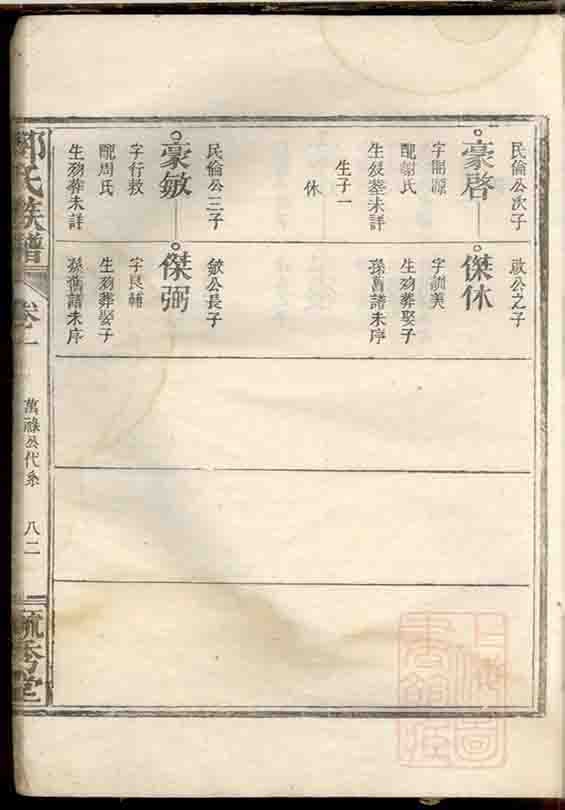 民倫公次子
豪啓
字開源
配謝氏
生歿墓未詳
生子一
休
民倫公三子
豪敏
字行敏
配周氏
生歿葬未詳
啟公之子
傑休
字訓美
生歿葬娶子
孫舊譜未序
敏公長子
傑弼
字良輔
生歿葬娶子
孫舊譜未序
氏族譜
卷一
萬祿公代系
八二
毓秀堂